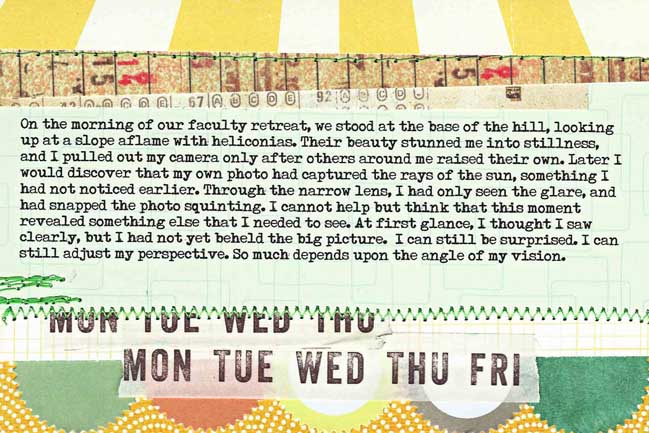 15
14
15
67 A B C D E 92 A B C D E
On the morning of our faculty retreat, we stood at the base of the hill, looking
up at a slope aflame with heliconias. Their beauty stunned me into stillness,
and I pulled out my camera only after others around me raised their own. Later I
would discover that my own photo had captured the rays of the sun, something I
had not noticed earlier. Through the narrow lens, I had only seen the glare, and
had snapped the photo squinting. I cannot help but think that this moment
revealed something else that I needed to see. At first glance, I thought I saw
clearly, but I had not yet beheld the big picture. I can still be surprised. I can
still adjust my perspective. So much depends upon the angle of my vision.
MON TUE WED THU
MON TUE WED THU FRI